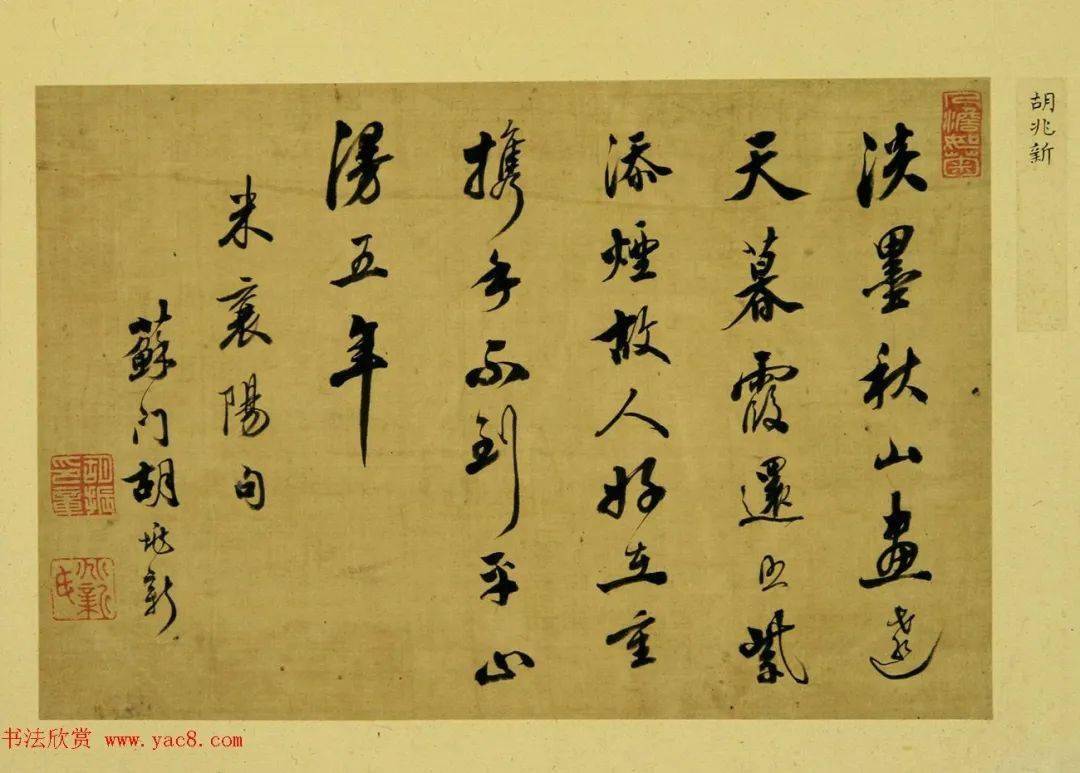 胡兆新
人澹如菊
淡墨秋山畫遠
天暮霞還照紫
添煙故人好在重
攜手不到平山
漫五年
米襄陽句
蘇门胡兆新
书法欣赏 www.yac8.com